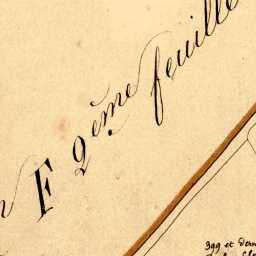 F 2ème feuille
399 et dern